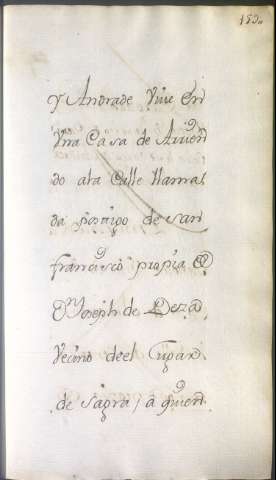 153.
y Andrade Vive en
Vna Casa de Arien
do ala Calle llama
da postigo de san
francisco propia @
Dn. Joseph de Leza
Vecino deel Lugar
de Sagra, a quien